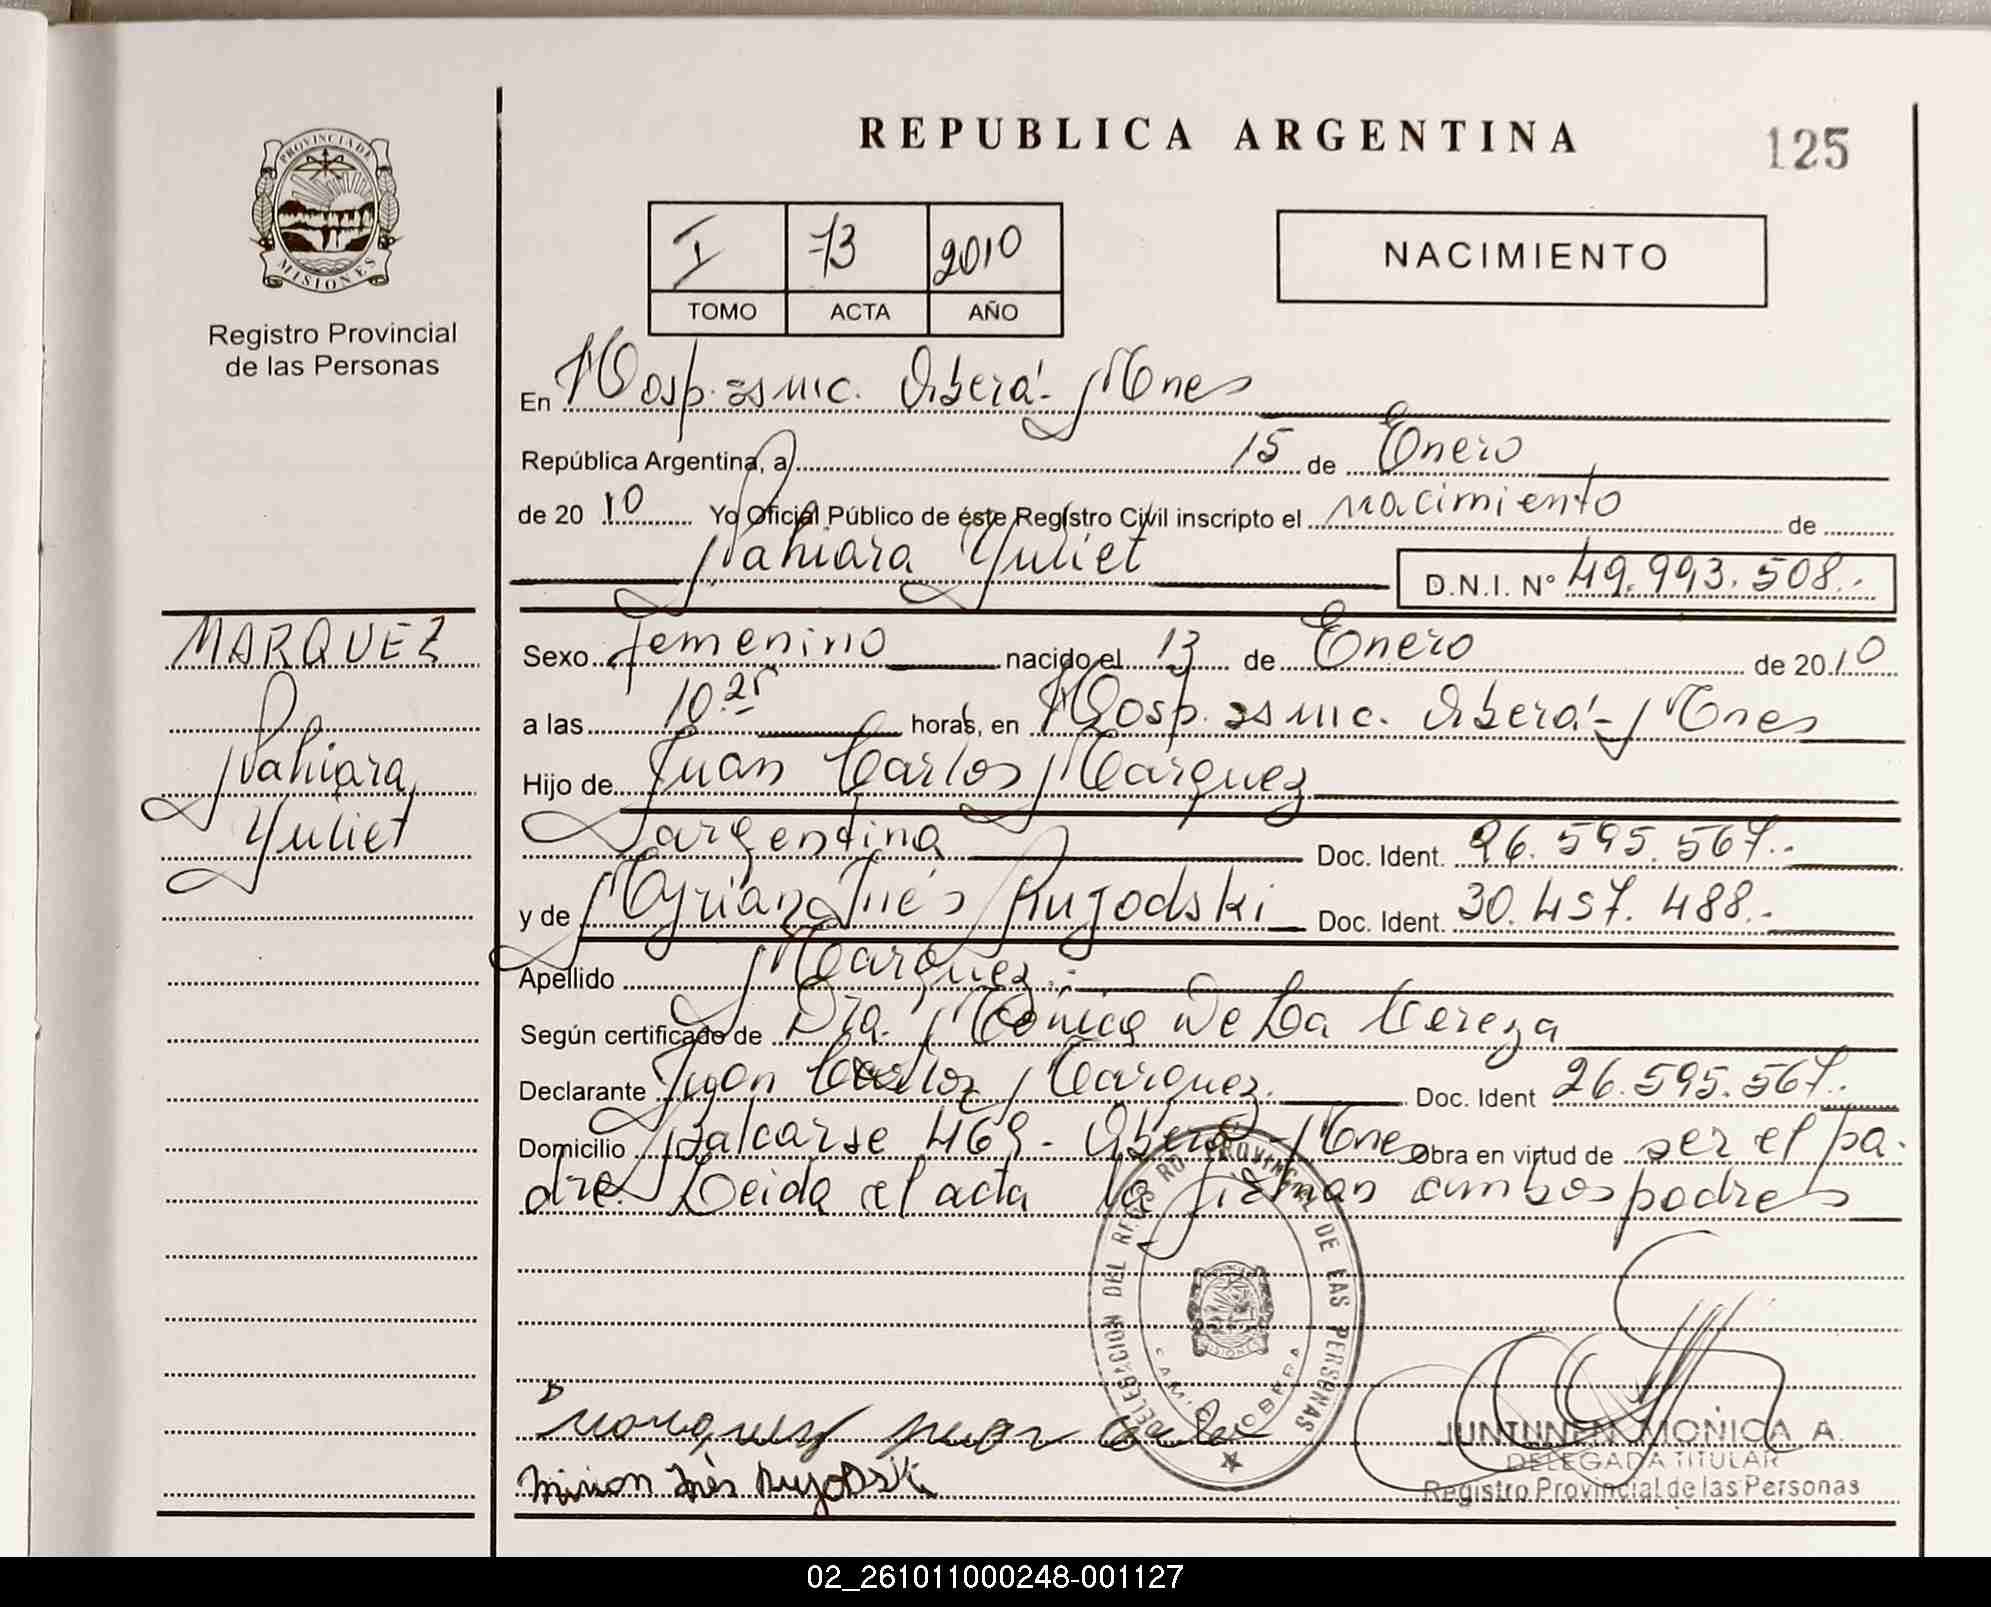 REPUBLICA ARGENTINA
125
PROVINCIA DE
MISIONES
Registro Provincial
de las Personas
I 73 2010
TOMO ACTA AÑO
NACIMIENTO
En Hosp. Oberá - Mnes
República Argentina, a 15 de Enero
de 20 10 Yo Oficial Público de éste Registro Civil inscripto el nacimiento de
Nahiara Yuliet D.N.I. Nº 49.993.508.-
MARQUEZ
Nahiara
Yuliet
Sexo femenino nacido el 13 de Enero de 20 10
a las 10.25 horas, en Hosp. Oberá - Mnes
Hijo de Juan Carlos Marquez
argentina Doc. Ident. 26.595.567.-
y de Myrian Inés Rujodski Doc. Ident. 30.457.488.-
Apellido Marquez.-
Según certificado de Dra. Mónica De La Cereza
Declarante Juan Carlos Marquez. Doc. Ident 26.595.567.-
Domicilio Balcarse 469 - Oberá - Mnes Obra en virtud de ser el pa-
dre. Leida el acta la firman ambos padres
DELEGACION DEL REGISTRO PROVINCIAL DE LAS PERSONAS
OBERA
MISIONES
Marquez Juan Carlos
Mirion Inés Rujodski
JUNTUNEN MONICA A.
DELEGADA TITULAR
Registro Provincial de las Personas
02_261011000248-001127